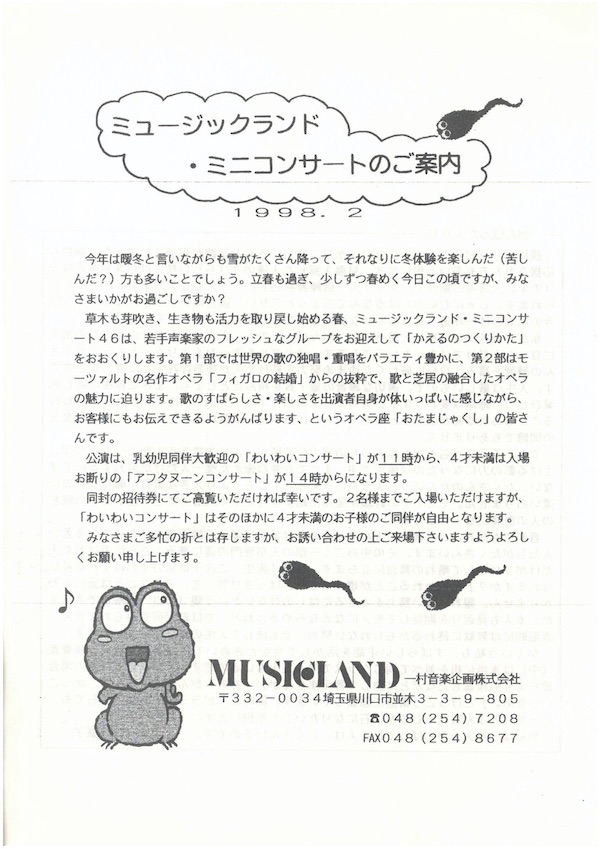 ミュージックランド
・ミニコンサートのご案内
１９９８．２
今年は暖冬と言いながらも雪がたくさん降って、それなりに冬体験を楽しんだ（苦し
んだ？）方も多いことでしょう。立春も過ぎ、少しずつ春めく今日この頃ですが、みな
さまいかがお過ごしですか？
草木も芽吹き、生き物も活力を取り戻し始める春、ミュージックランド・ミニコンサ
ート４６は、若手声楽家のフレッシュなグループをお迎えして「かえるのつくりかた」
をおおくりします。第１部では世界の歌の独唱・重唱をバラエティ豊かに、第２部はモ
ーツァルトの名作オペラ「フィガロの結婚」からの抜粋で、歌と芝居の融合したオペラ
の魅力に迫ります。歌のすばらしさ・楽しさを出演者自身が体いっぱいに感じながら、
お客様にもお伝えできるようがんばります、というオペラ座「おたまじゃくし」の皆さ
んです。
公演は、乳幼児同伴大歓迎の「わいわいコンサート」が１１時から、４才未満は入場
お断りの「アフタヌーンコンサート」が１４時からになります。
同封の招待券にてご高覧いただければ幸いです。２名様までご入場いただけますが、
「わいわいコンサート」はそのほかに４才未満のお子様のご同伴が自由となります。
みなさまご多忙の折とは存じますが、お誘い合わせの上ご来場下さいますようよろし
くお願い申し上げます。
MUSICLAND 一村音楽企画株式会社
〒３３２－００３４埼玉県川口市並木３－３－９－８０５
☎０４８（２５４）７２０８
FAX０４８（２５４）８６７７